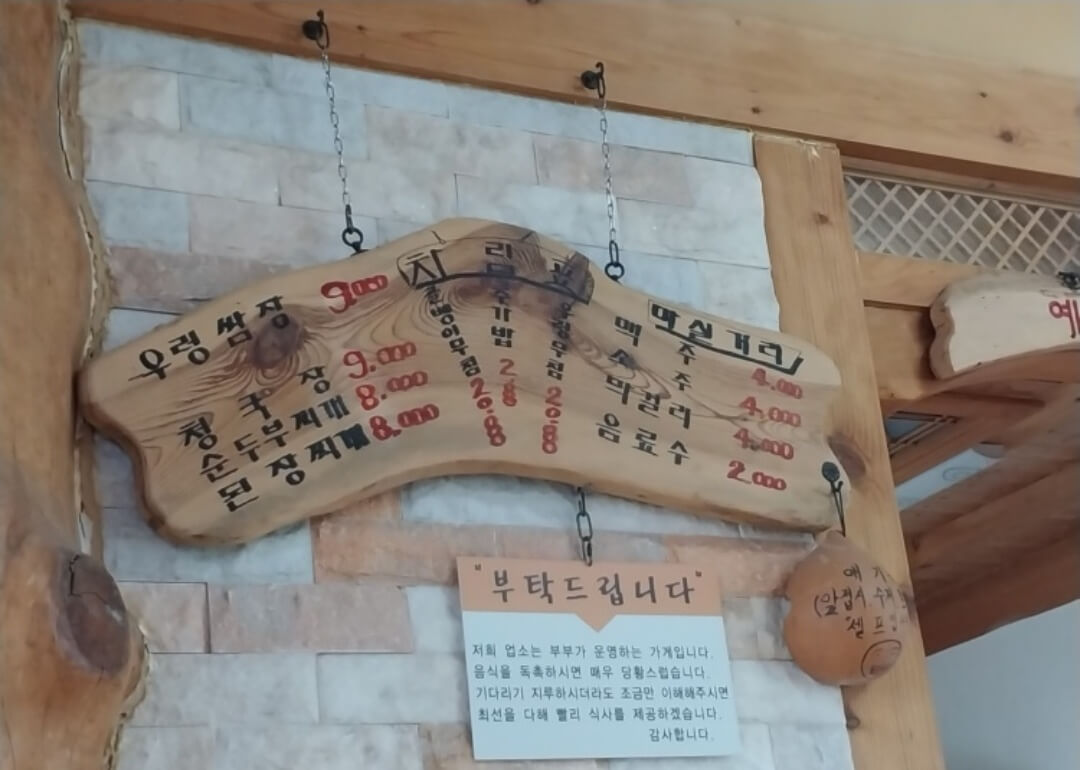 차 림 표
우렁쌈장 9.000
청국장 9.000
순두부찌개 8.000
된장찌개 8.000
추가밥 2.000
우렁무침 20.000
마실거리
맥주 4.000
소주 4.000
막걸리 4.000
음료수 2.000
"부탁드립니다"
저희 업소는 부부가 운영하는 가게입니다.
음식을 독촉하시면 매우 당황스럽습니다.
기다리기 지루하시더라도 조금만 이해해주시면
최선을 다해 빨리 식사를 제공하겠습니다.
감사합니다.
예
(앞접시.
셀프